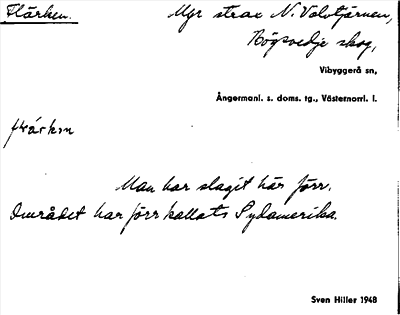 Flärken.
Myr strax N. Valvtjärnen,
Högsvedje skog,
Vibyggerå sn,
Ångermanl. s. doms. tg., Västernorrl. l.
Man har slagit här förr.
Området har förr kallats Sydamerika.
Sven Hiller 1948